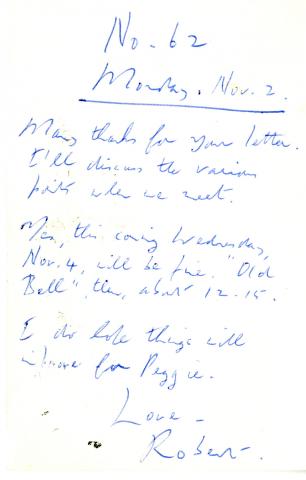 No. 62
Monday. Nov. 2.
Many thanks for your letter.
I'll discuss the various
points when we meet.
Yes, this coming Wednesday,
Nov. 4, will be fine. "Old
Bell", then, about 12.15.
I do hope things will
improve for Peggie.
Love –
Robert.